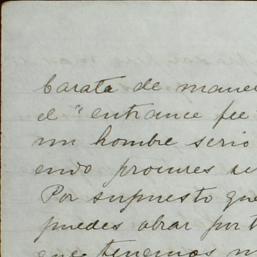 barata de mane
el "entrance fee
un hombre serio
endo procures se
Por supuesto que
puedes obrar por t
que tenemos n